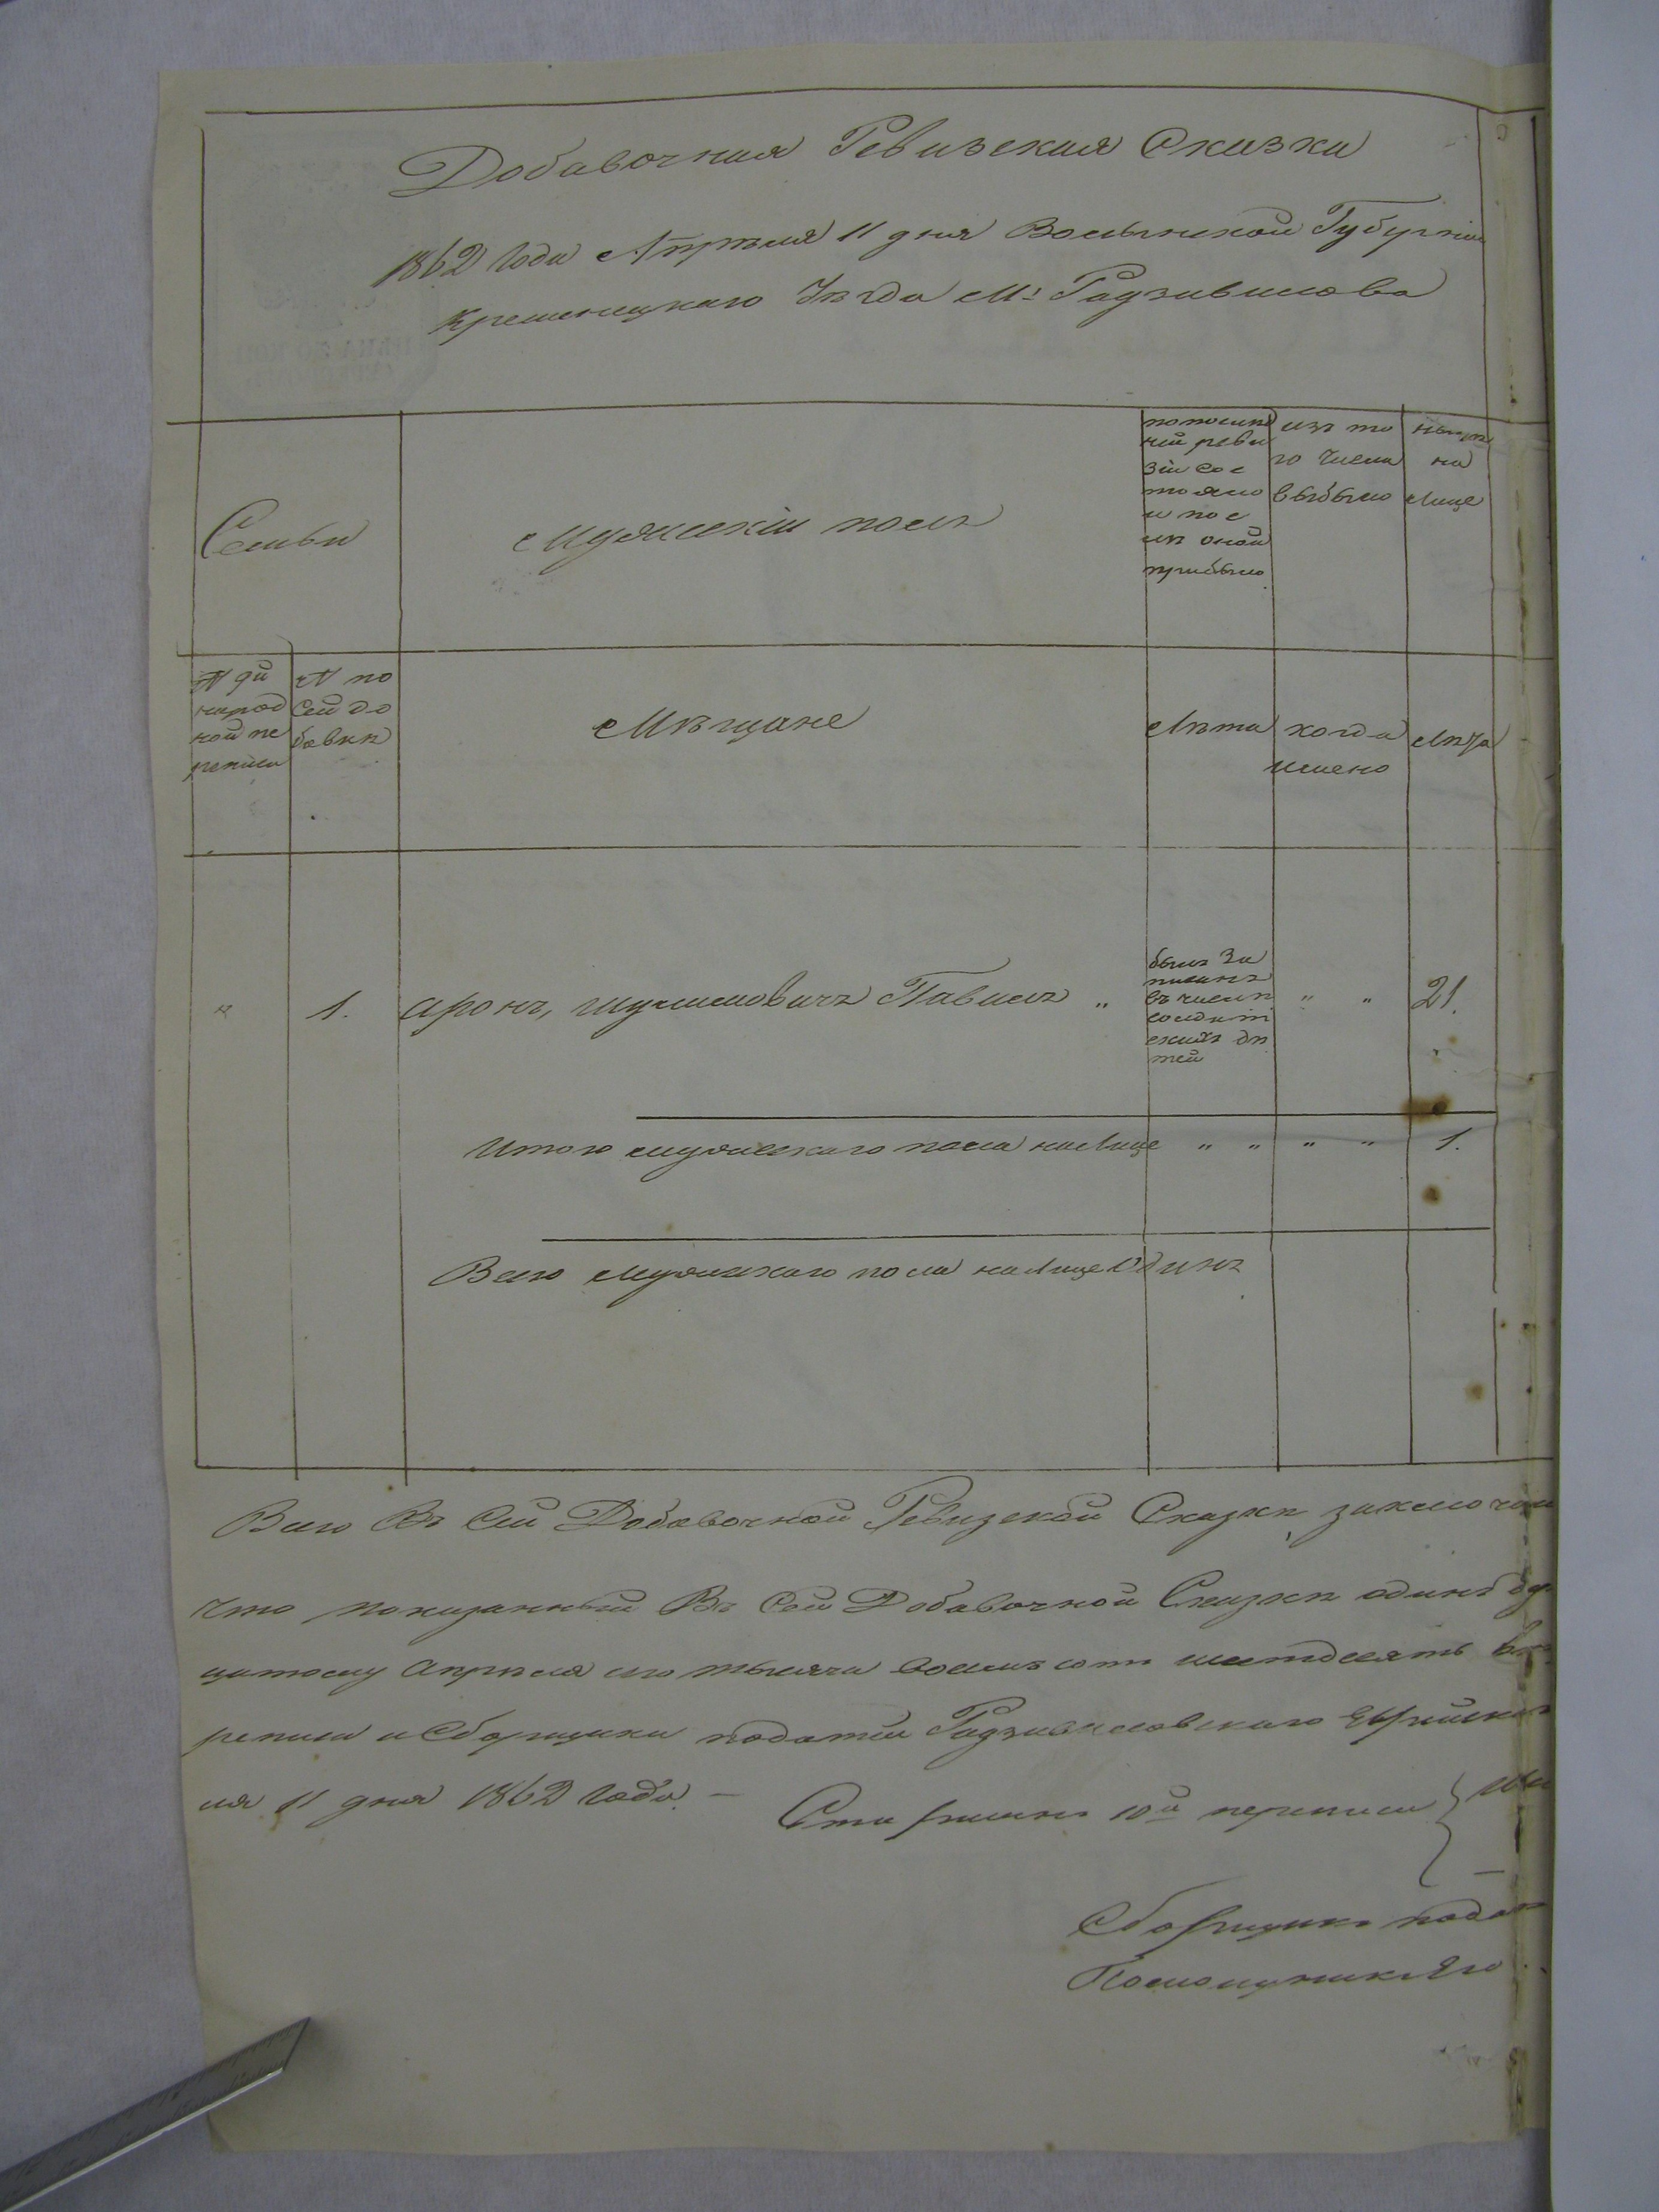 Добавочная Ревизская Сказка
1862 года Апреля 11 дня Волынской Губернiи
Кременецкаго Уезда М: Радзивилова
Семьи
Мужескiй полъ
по после
ней реви
зiи сос
тояло
и пос
лѣ оной
прибыло
изъ то
го числа
выбыло
нынѣ
на
лице
народ
ной пе
реписи
№ по
сей до
бавкѣ
Мѣщане
Лѣта
когда
имено
Лѣта
1. Аронъ, Шулимовичъ Павилъ „
былъ за
писанъ
въ числѣ
солдат
скихъ дѣ
тей
„ „
21.
Итого мужескаго пола на лице „ „ „ „ 1.
Всего мужескаго пола на лице Одинъ
Всего Въ Сей Добавочной Ревизской Сказкѣ заключа
Что показанный Въ Сей Добавочной Сказкѣ одинъ
апреля тысяча восемь сотъ шестдесятъ
реписи и Сборщики податей Радзивиловскаго Еврейска
ля 11 дня 1862 года. —
Старшина 10й переписи
Сборщикъ подат
Помощникъ Его